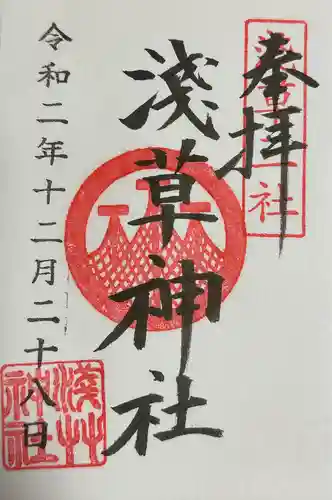 奉拝
浅草神社
令和二年十二月二十八日
淺草
神社